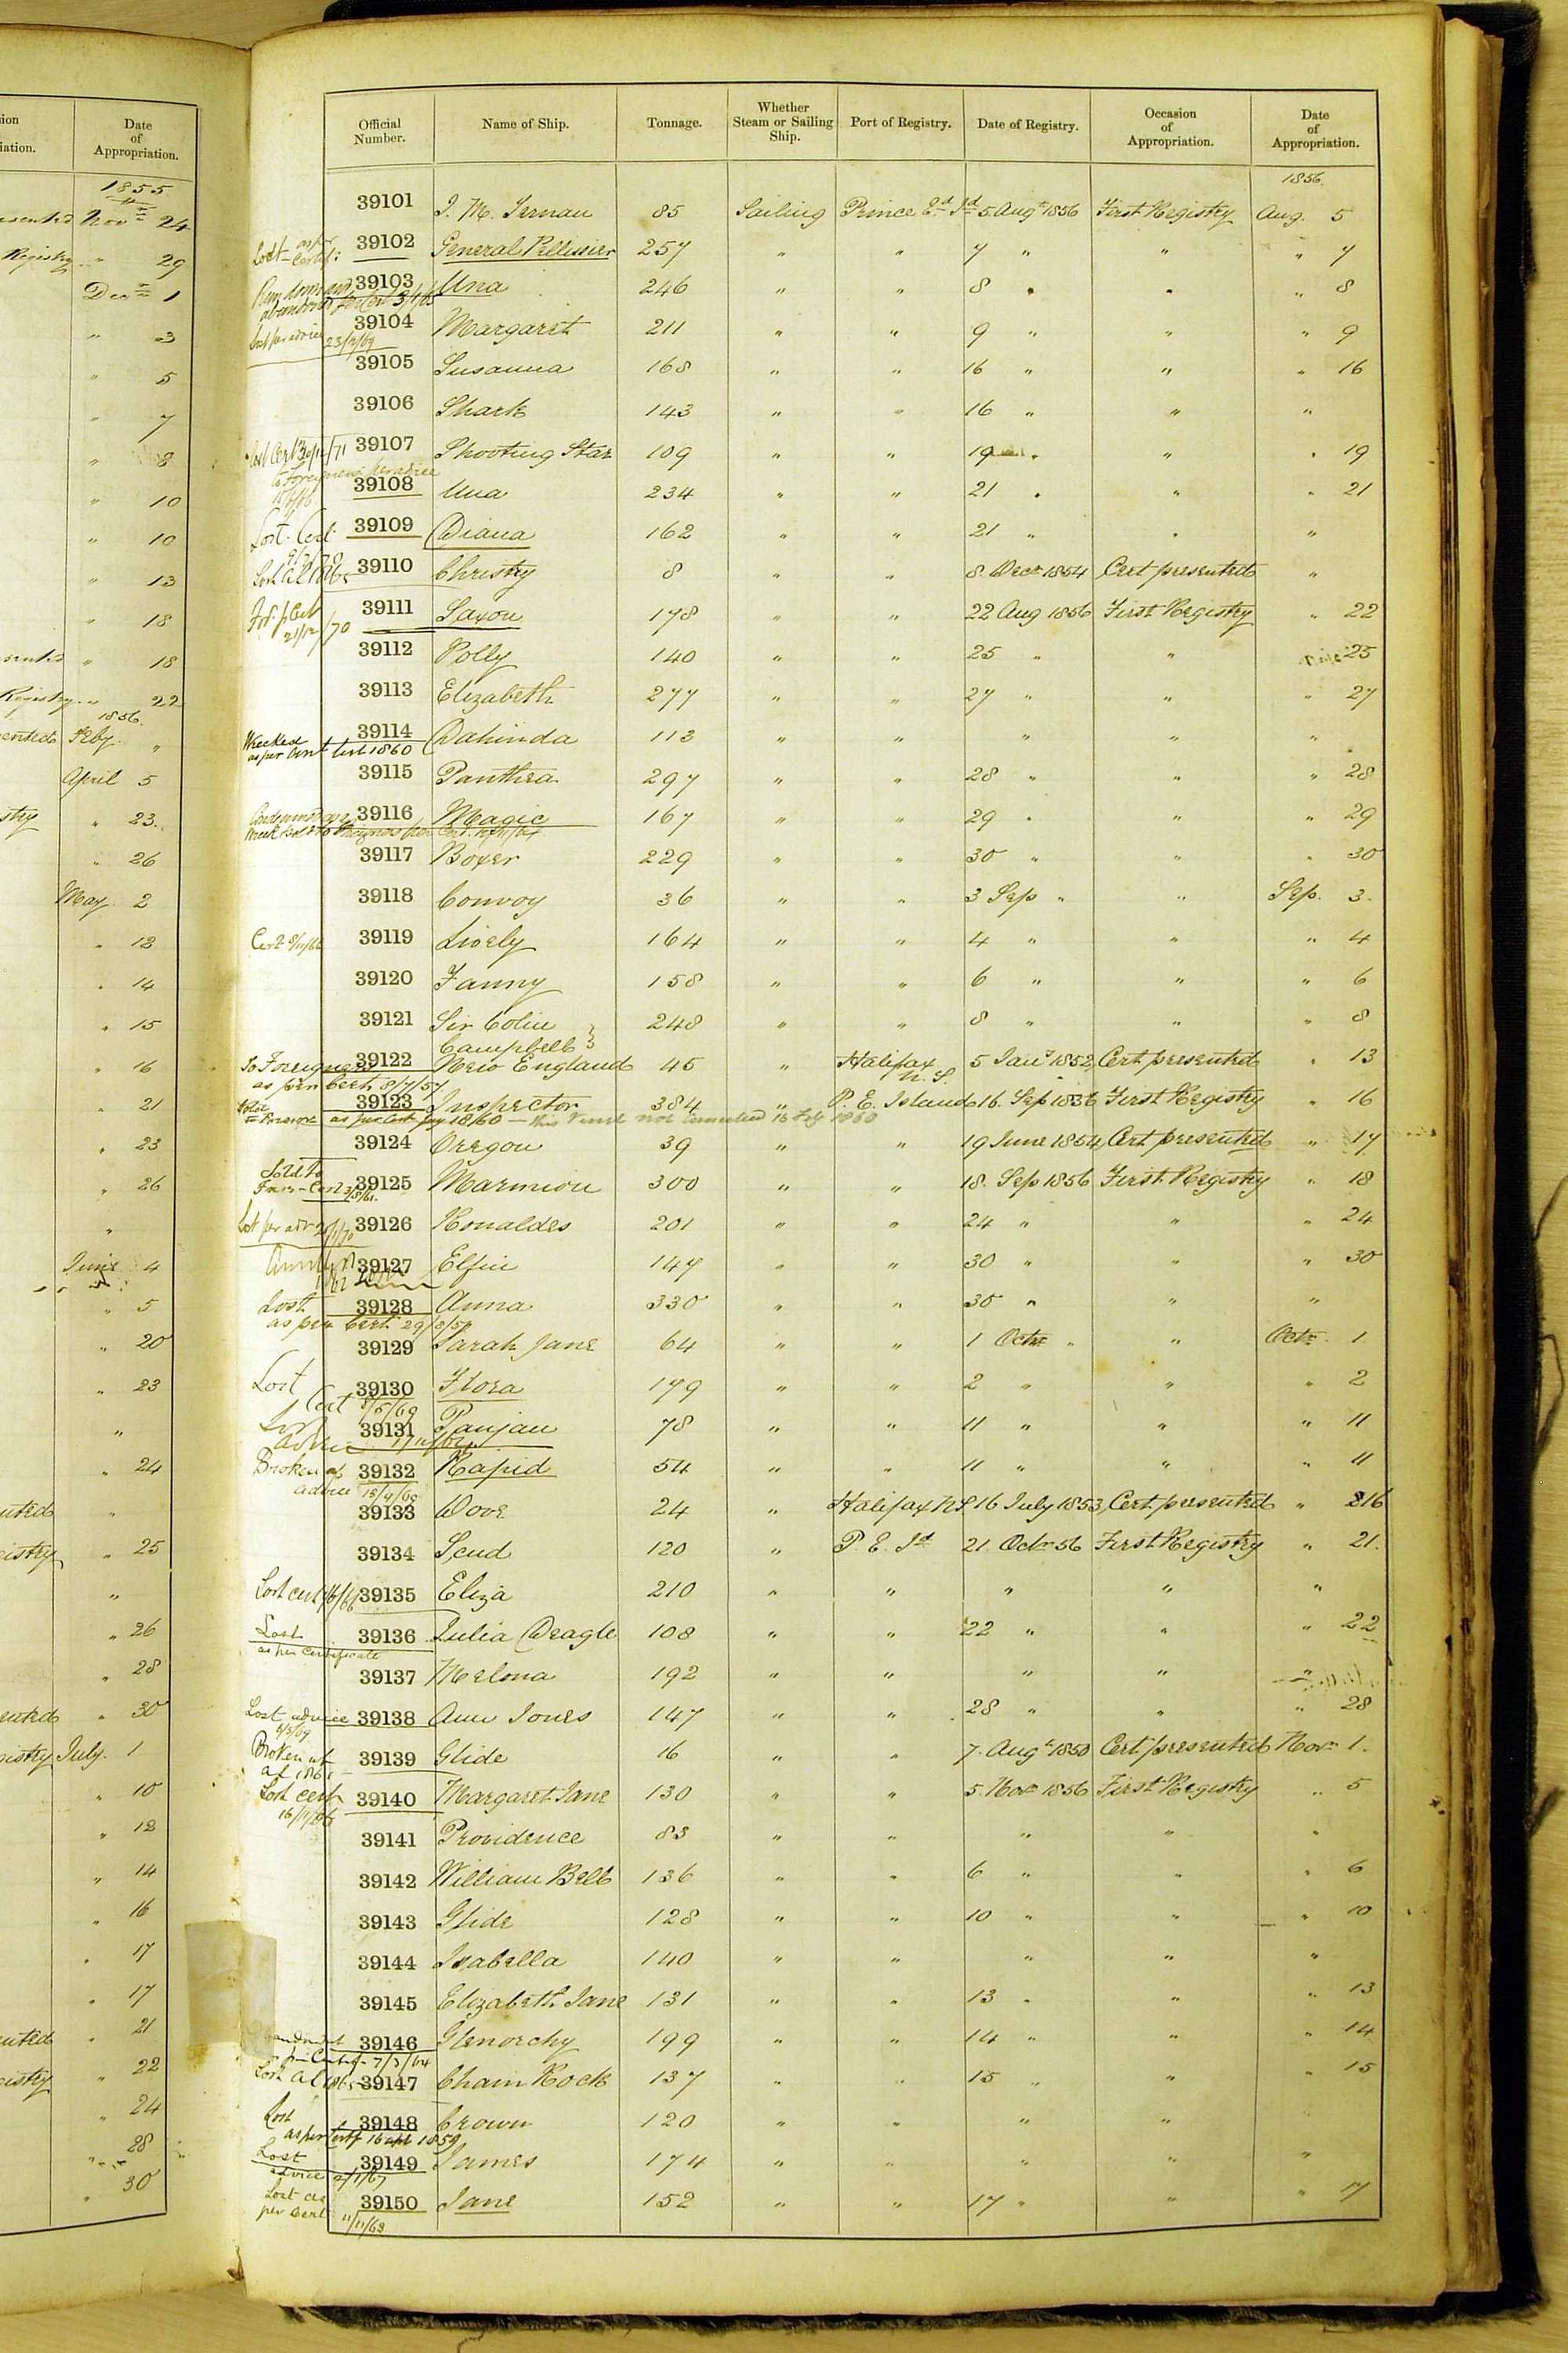 ion
iation.
Date
of
Appropriation.
1855
Nov 24
Registry " 29
Dec 1
" 3
" 5
" 7
" 8
" 10
" 10
" 13
" 18
" 18
Registry " 22
1856
Feby "
April 5
stry " 23
" 26
May 2
" 12
" 14
" 15
" 16
" 21
" 23
" 26
"
June 4
" 5
" 20
" 23
"
" 24
"
" 25
"
" 26
" 28
" 30
July 1
" 10
" 12
" 14
" 16
" 17
" 17
" 21
" 22
" 24
" 28
" 30
Official Number. Name of Ship. Tonnage. Whether Steam or Sailing Ship. Port of Registry. Date of Registry. Occasion of Appropriation. Date of Appropriation.
1856
39101 85 Sailing Prince Ed Id 5 Augt 1856 First Registry Aug. 5
Lost as per Certif: 39102 General Pellissier 257 " " 7 " " " 7
Run down and abandoned 39103 Una 246 " " 8 " " " 8
Lost per advice 23/2/69 39104 Margaret 211 " " 9 " " " 9
39105 Susanna 168 " " 16 " " " 16
39106 Shark 143 " " 16 " " "
Lost Cert 39107 Shooting Star 109 " " 19 " " " 19
to Foreigners per advice 39108 Una 234 " " 21 " " " 21
Lost. Cert. 39109 Diana 162 " " 21 " " "
39110 Christy 8 " " 8 Decr 1854 Cert presented "
21/12/70 39111 Saxon 178 " " 22 Aug 1856 First Registry " 22
39112 Polly 140 " " 25 " " " 25
39113 Elizabeth 277 " " 27 " " " 27
Wrecked as per list 1860 39114 Dahinda 113 " " " " "
39115 Panthea 297 " " 28 " " " 28
39116 Magic 167 " " 29 " " " 29
39117 Boxer 229 " " 30 " " " 30
39118 Convoy 36 " " 3 Sep " " Sep. 3.
39119 Lively 164 " " 4 " " " 4
39120 Fanny 158 " " 6 " " " 6
39121 Sir Colin Campbell 248 " " 8 " " " 8
To Foreigners as per Cert 8/7/57 39122 New England 45 " Halifax N.S. 5 Jany 1852 Cert presented " 13
39123 Inspector 384 " P. E. Island 16. Sep 1856 First Registry " 16
as per Cert 1860 - this Vessel not cancelled 16 Feby 1860
39124 Oregon 39 " " 19 June 1854 Cert presented " 17
Sold to 39125 Marmion 300 " " 18. Sep 1856 First Registry " 18
Lost per adv 39126 Ronaldes 201 " " 24 " " " 24
39127 Elfin 147 " " 30 " " " 30
Lost as per Cert 39128 Anna 330 " " 30 " " "
39129 Sarah Jane 64 " " 1 Octr " " Octr. 1
Lost Cert 8/5/69 39130 Flora 179 " " 2 " " " 2
39131 Panjau 78 " " 11 " " " 11
Broken up advice 39132 Rapid 54 " " 11 " " " 11
39133 Dove 24 " Halifax NS 16 July 1853 Cert presented " 16
39134 Scud 120 " P. E. Id 21 Octr 56 First Registry " 21.
Lost cert 39135 Eliza 210 " " " " "
Lost as per certificate 39136 Julia Deagle 108 " " 22 " " " 22
39137 Melona 192 " " " " "
Lost advice 39138 Ann Jones 147 " " 28 " " " 28
Broken up 39139 Glide 16 " " 7. Augt 1850 Cert presented Nov 1.
Lost cert 39140 Margaret Jane 130 " " 5. Nov 1856 First Registry " 5
39141 Providence 83 " " " " "
39142 William Bell 136 " " 6 " " " 6
39143 Glide 128 " " 10 " " " 10
39144 Isabella 140 " " " " "
39145 Elizabeth Jane 131 " " 13 " " " 13
7/3/64 39146 Glenorchy 199 " " 14 " " " 14
Lost 39147 Cham Rock 137 " " 15 " " " 15
Lost as per Certf 16 apl 1859 39148 Crown 120 " " " "
Lost advice 39149 James 174 " " " " "
Lost as per Cert 39150 Jane 152 " " 17 " " " 17